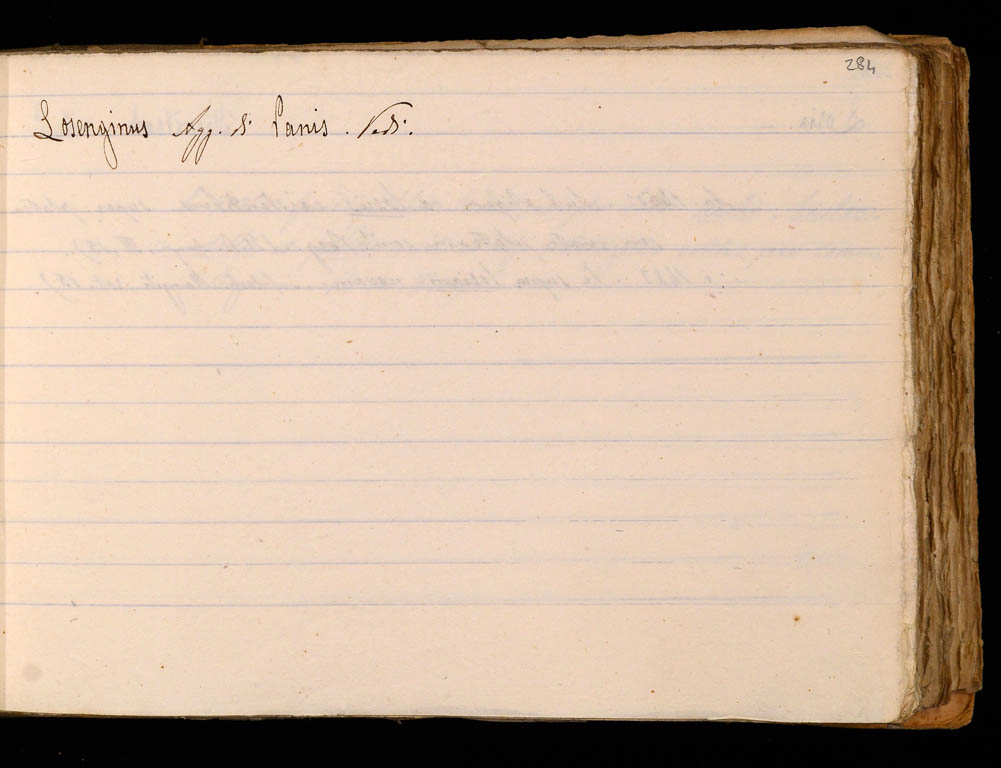 284
Losenginus Agg. di Panis. Vedi.